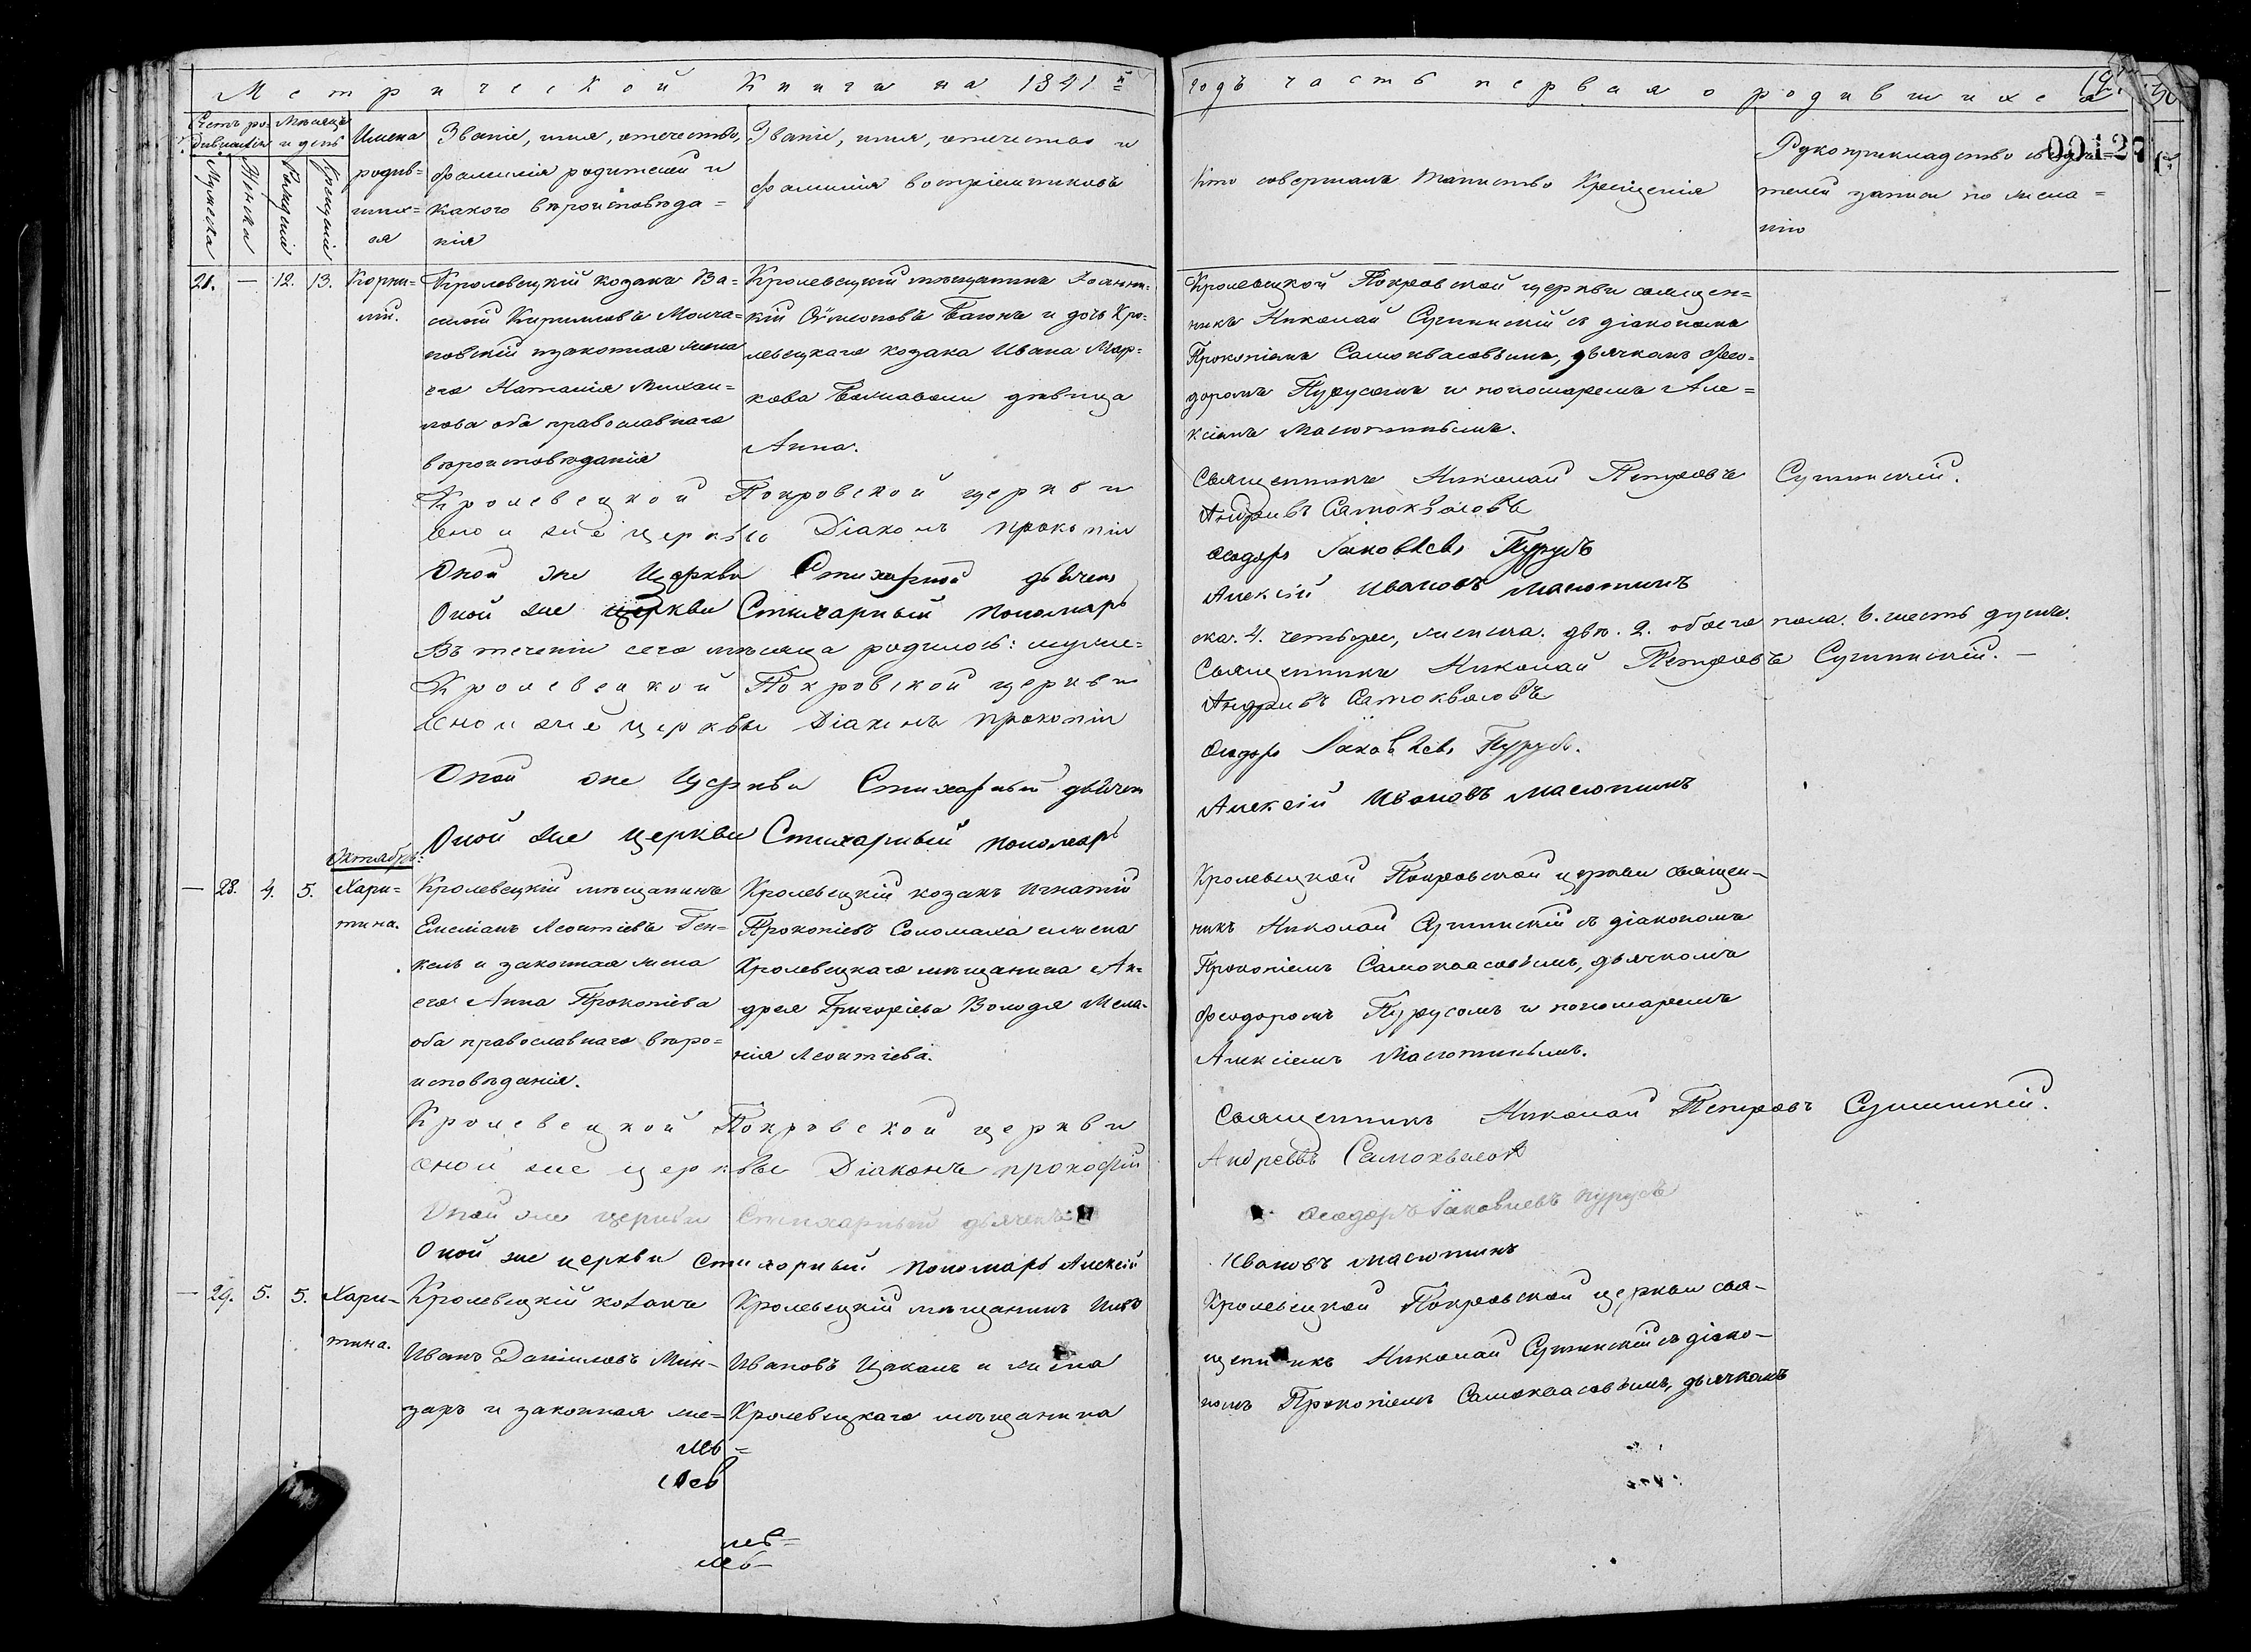 Метрической Книги на 1841й
годъ часть первая о родившихся
00127
Счетъ ро=
дившихся
Мѣсяцъ
и день
Мужеска
Женска
Рожденія
Крещенія
Имена
родив=
ших=
ся
Званіе, имя, отечество,
фамилія родителей и
какого вѣроисповѣда=
нія
Званіе, имя, отечество и
фамилія воспріемниковъ
Кто совершалъ таинство Крещенія
Рукоприкладство свидѣ=
телей записи по жела=
нію
21. — 12. 13.
Корни=
лій.
Кролевецкій козакъ Ва=
силій Кирилловъ Молча=
новскій и законная жена
его Наталія Михаи=
лова оба православнаго
вѣроисповѣданія
Кролевецкій мѣщанинъ Іоанни=
кій Сѵмеоновъ и дочь Кро=
левецкаго козака Ивана Мар=
кова дѣвица
Анна.
Кролевецкой Покровской церкви священ=
никъ Николай Сушинскій съ діакономъ
Прокопіемъ Самоквасовымъ, дьячкомъ Фео=
доромъ Пурусомъ и пономаремъ Але=
ксіемъ Масютинымъ.
Кролевецкой Покровской церкви
Священникъ Николай Петровъ Сушинскій.
оной же церквы Діаконъ прокопій
Андріивъ Самоквасовъ
Оной же Церкви Стихарной дьячекъ
Феодоръ Іаковлевъ Пурусъ
Оной же церкви Стихарный пономарь
Алексій Ивановъ Масютинъ
Въ теченіи сего мѣсяца родилось: муже=
ска. 4. четыре, женска. двѣ. 2. обоего пола. 6. шесть душъ.
Кролевецкой Покровской церкви
Священникъ Николай Петровъ Сушинскій. —
оной же церквы Діаконъ прокопій
Андріивъ Самоквасовъ
Оной же Церкви Стихарный дьячекъ
Феодоръ Іаковлевъ Пурусъ.
Оной же церкви Стихарный пономарь
Алексій Ивановъ Масютинъ
Октябрь:
— 28. 4. 5.
Хари=
тина.
Кролевецкій мѣщанинъ
Емеліанъ Леонтіевъ Ген=
кель и законная жена
его Анна Прокопіева
оба православнаго вѣро=
исповѣданія.
Кролевецкій козакъ Игнатій
Прокопіевъ Соломаха и жена
Кролевецкаго мѣщанина Ан=
дрея Григоріева Володя Мела=
нія Леонтіева.
Кролевецкой Покровской церкви священ=
никъ Николай Сушинскій съ діакономъ
Прокопіемъ Самоквасовымъ, дьячкомъ
Феодоромъ Пурусомъ и пономаремъ
Алексіемъ Масютинымъ.
Кролевецкой Покровской церкви
Священникъ Николай Петровъ Сушинскій.
оной же церквы Діаконъ прокофій
Андреевъ Самоквасов
Оной же церкви Стихарный дьячекъ
Феодоръ Іаковлевъ Пурусъ
Оной же церкви Стихарный пономарь Алексій
Ивановъ Масютинъ
— 29. 5. 5.
Хари=
тина.
Кролевецкій козакъ
Иванъ Даниловъ Мин=
заръ и законная же=
Кролевецкій мѣщанинъ
Ивановъ Цакалъ и жена
Кролевецкаго мѣщанина
Кролевецкой Покровской церкви свя=
щенникъ Николай Сушинскій съ діако=
номъ Прокопіемъ Самоквасовымъ, дьячкомъ